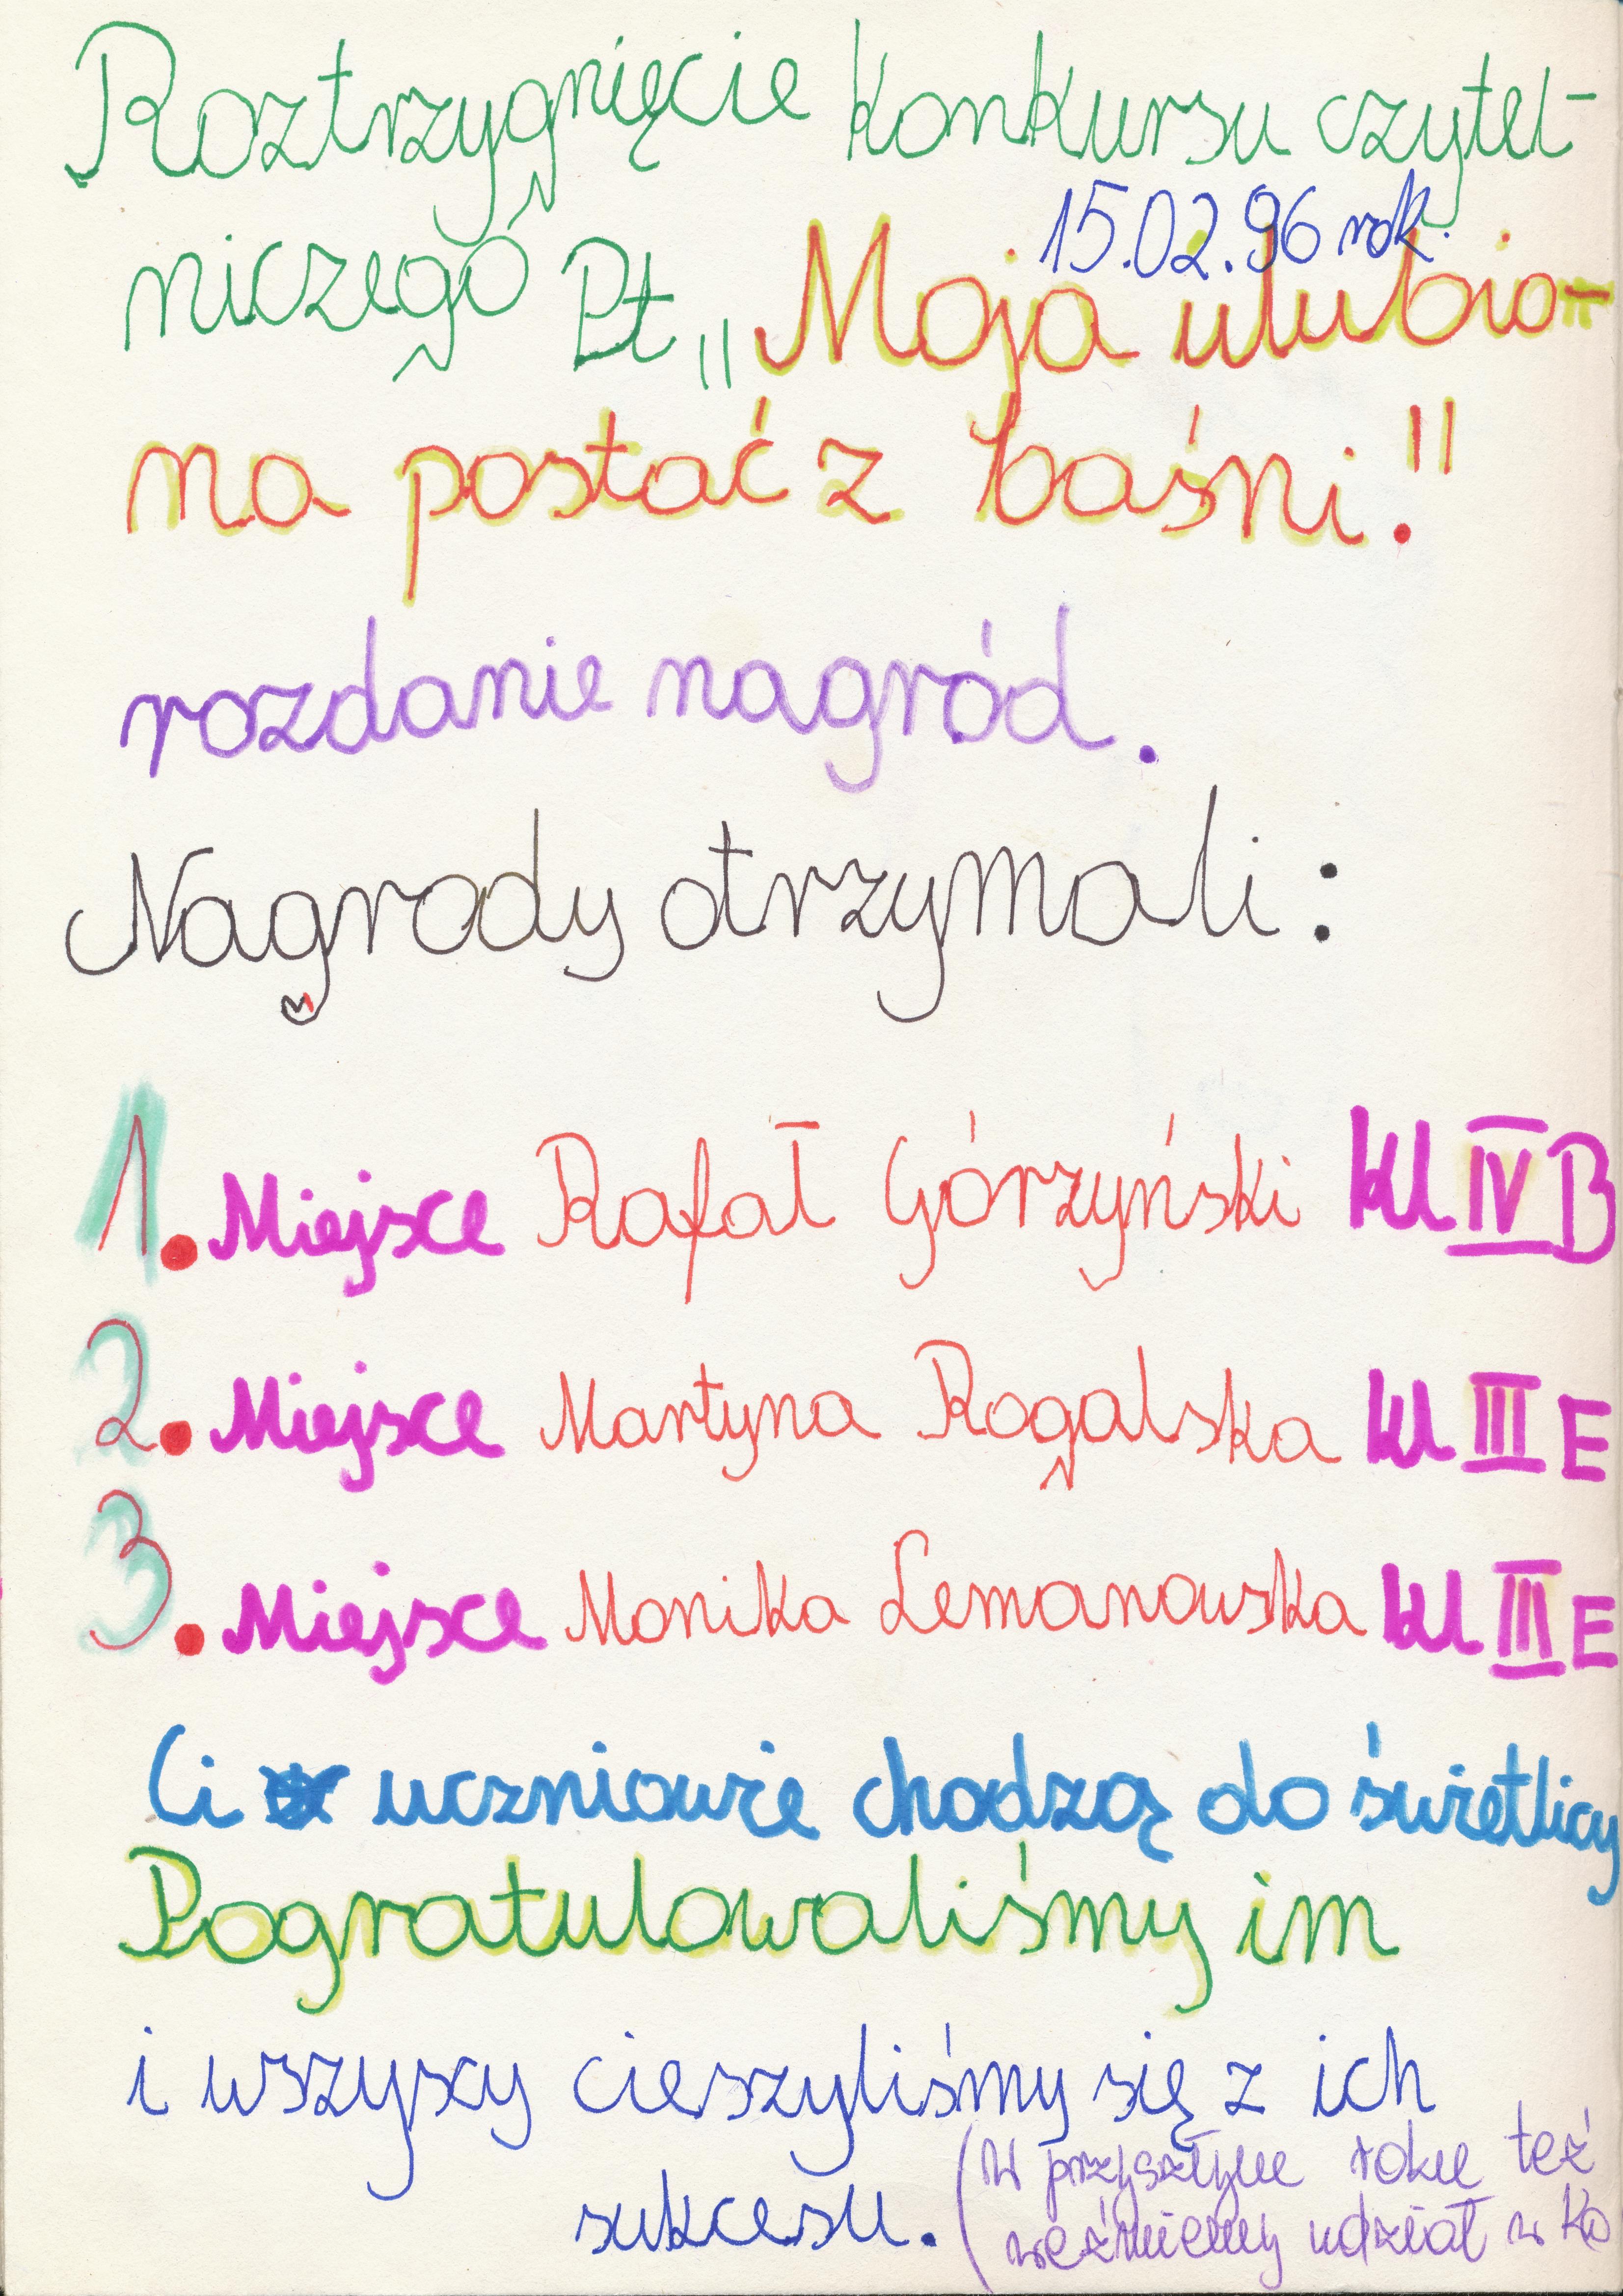 Roztrzygnięcie konkursu czytel-
15.02.96 rok.
niczego Pt „Moja ulubio-
na postać z baśni!"
rozdanie nagród.
Nagrody otrzymali:
1. Miejsce Rafał Górzyński kl IV B
2. Miejsce Martyna Rogalska kl III E
3. Miejsce Monika Lemanowska kl III E
Ci uczniowie chodzą do świetlicy
Pogratulowaliśmy im
i wszyscy cieszyliśmy się z ich
sukcesu.
(w przyszłym roku też
weźmiemy udział w ko